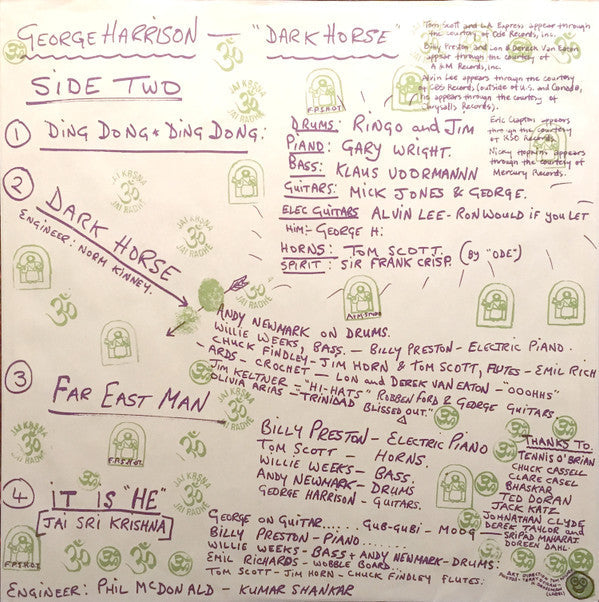 GEORGE HARRISON — "DARK HORSE"
Tom Scott and L.A. Express appear through
the courtesy of Ode Records, Inc.
Billy Preston and Lon & Dereck Van Eaton
appear through the courtesy of
A & M Records, Inc.
Alvin Lee appears through the courtesy
of CBS Records (outside of U.S. and Canada,
he appears through the courtesy of
Chrysalis Records).
Eric Clapton appears
through the courtesy
of RSO Records.
Nicky Hopkins appears
through the courtesy of
Mercury Records.
SIDE TWO
① DING DONG * DING DONG:
DRUMS: RINGO and JIM
PIANO: GARY WRIGHT.
BASS: KLAUS VOORMANN
GUITARS: MICK JONES & GEORGE.
ELEC GUITARS ALVIN LEE - RON WOULD IF YOU LET
HIM - GEORGE H:
HORNS: TOM SCOTT. (BY "ODE")
SPIRIT: SIR FRANK CRISP.
② DARK HORSE
ENGINEER: NORM KINNEY.
ANDY NEWMARK ON DRUMS.
WILLIE WEEKS, BASS. — BILLY PRESTON - ELECTRIC PIANO.
CHUCK FINDLEY - JIM HORN & TOM SCOTT, FLUTES - EMIL RICH
-ARDS - CROCHET — LON and DEREK VAN EATON - "OOOHHS"
JIM KELTNER - "HI-HATS" ROBBEN FORD & GEORGE GUITARS.
OLIVIA ARIAS - "TRINIDAD BLISSED OUT."
③ FAR EAST MAN
BILLY PRESTON - ELECTRIC PIANO
TOM SCOTT - HORNS.
WILLIE WEEKS - BASS.
ANDY NEWMARK - DRUMS
GEORGE HARRISON - GUITARS.
THANKS TO.
TENNIS O'BRIAN
CHUCK CASSELL
CLARE CASEL
BHASKAR
TED DORAN
JACK KATZ
JOHNATHAN CLYDE
DEREK TAYLOR and
SRIPAD MAHARAJ
DOREEN DAHL.
④ IT IS "HE"
JAI SRI KRISHNA
GEORGE ON GUITAR...... GUB-GUBI - MOOG
BILLY PRESTON - PIANO......
WILLIE WEEKS - BASS + ANDY NEWMARK - DRUMS:
EMIL RICHARDS - WOBBLE BOARD.
TOM SCOTT - JIM HORN - CHUCK FINDLEY FLUTES:
ENGINEER: PHIL McDONALD - KUMAR SHANKAR
F.P.S.H.O.T.
JAI KRSNA
ॐ
JAI RADHE